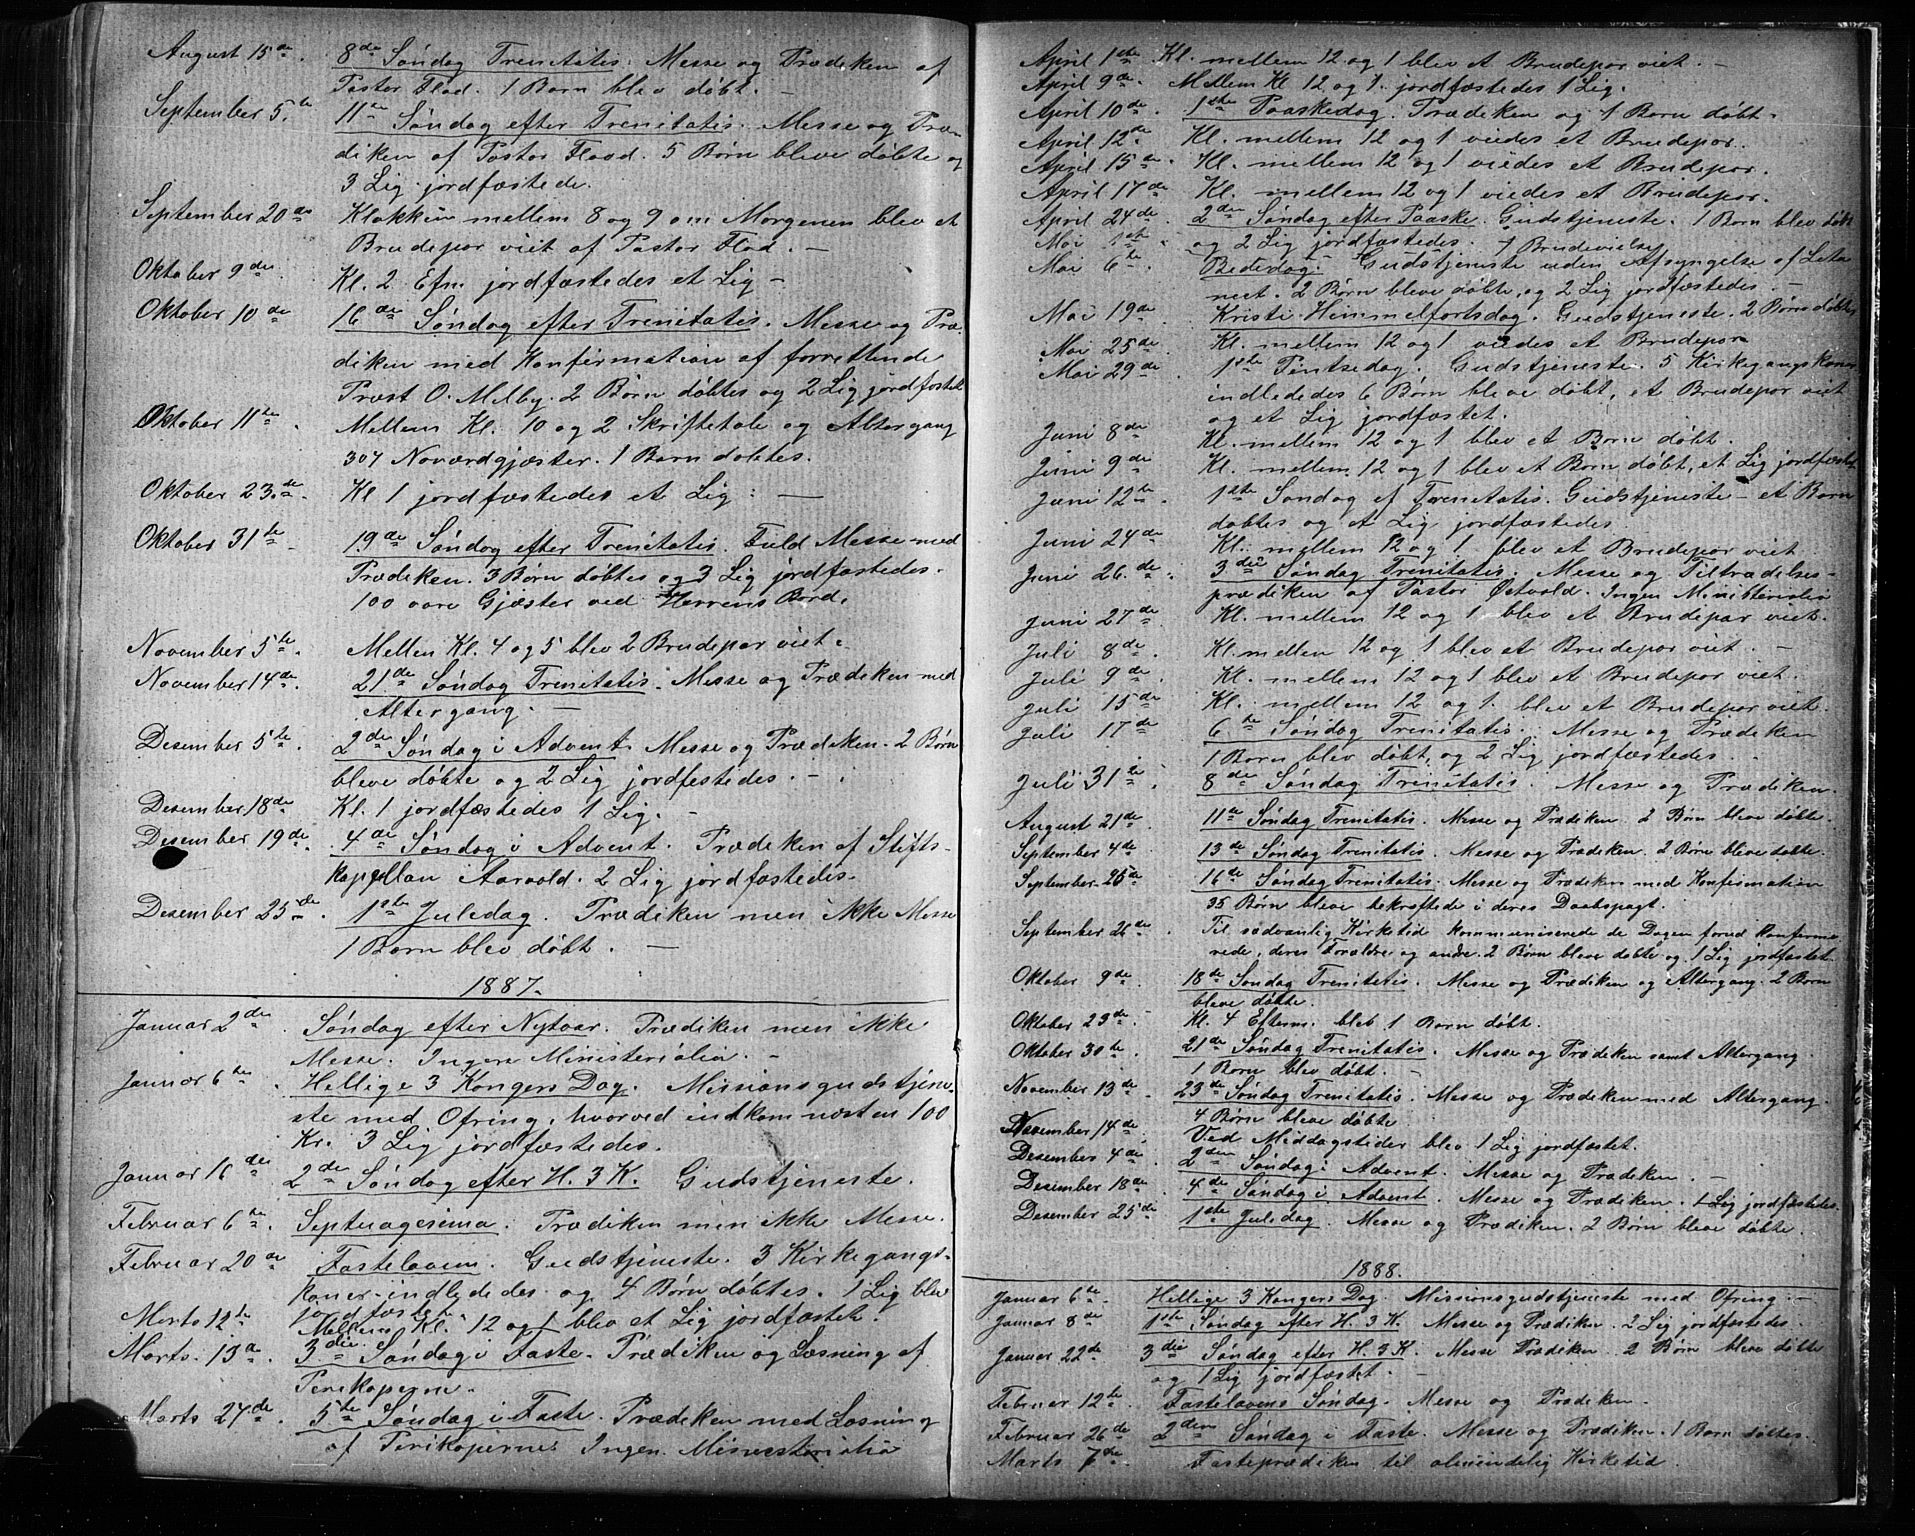 August 15de. 8de Søndag Trenitatis. Messe og Prædiken af
Pastor Flod. 1 Barn blev døbt. —
September 5te 11te Søndag efter Trenitatis. Messe og Præ-
diken af Pastor Flood. 5 Børn bleve døbte og
3 Lig jordfæstede.
September 20de Klokken mellem 8 og 9 om Morgenen blev et
Brudepar viet af Pastor Flod. —
Oktober 9de. Kl. 2 Efm jordfæstedes et Lig —
Oktober 10de 16de Søndag efter Trenitatis. Messe og Præ-
diken med Konfirmation af forrettende
Præst O. Melby. 2 Børn døbtes og 2 Lig jordfæstet
Oktober 11te. Mellem Kl. 10 og 2 Skriftetale og Altergang
307 Nadværdgjæster. 1 Barn døbtes.
Oktober 23de. Kl 1 jordfæstedes et Lig. —
Oktober 31te 19de Søndag efter Trenitatis. Fuld Messe med
Prædiken. 3 Børn døbtes og 3 Lig jordfæstedes.
100 vare Gjæster ved Herrens Bord.
November 5te. Mellem Kl. 4 og 5 blev 2 Brudepar viet.
November 14de. 21de Søndag Trenitatis. Messe og Prædiken med
Altergang. —
Desember 5te. 2de Søndag i Advent. Messe og Prædiken. 2 Børn
bleve døbte og 2 Lig jordfestedes. —
Desember 18de Kl. 1 jordfæstedes 1 Lig. —
Desember 19de. 4de Søndag i Advent. Prædiken af Stifts-
kapellan Aarvold. 2 Lig jordfæstedes.
Desember 25de. 1ste Juledag. Prædiken men ikke Messe
1 Barn blev døbt. —
1887.
Januar 2den Søndag efter Nytaar. Prædiken men ikke
Messe. Ingen Ministerialia. —
Januar 6te. Hellige 3 Kongers Dag. Missionsgudstjene-
ste med Ofring, hvorved indkom næsten 100
Kr. 3 Lig jordfæstedes.
Januar 16de 2den Søndag efter H. 3 K. Gudstjeneste.
Februar 6te. Septuagesima. Prædiken men ikke Messe.
Februar 20de Fastelavem. Gudstjeneste. 3 Kirkegangs-
koner indlededes og 4 Børn døbtes. 1 Lig blev
jordfæstet
Marts 12te Mellem Kl. 12 og 1 blev et Lig jordfæstet.
Marts. 13de. 3die Søndag i Faste. Prædiken og Læsning af
Perikoperne.
Marts 27de. 5te Søndag i Faste. Prædiken med Læsning
af Perikoperne. Ingen Ministerialia
April 1ste Kl. mellem 12 og 1 blev et Brudepar viet. —
April 9de. Mellem Kl 12 og 1. jordfæstedes 1 Lig.
April 10de. 1ste Paaskedag. Prædiken og 1 Barn døbt.
April 12te Kl. mellem 12 og 1 viedes et Brudepar.
April 15de. Kl. mellem 12 og 1 viedes et Brudepar.
April 17de Kl. mellem 12 og 1 viedes et Brudepar.
April 24de. 2den Søndag efter Paaske. Gudstjeneste. 1 Barn blev døbt
Mai 1ste og 2 Lig jordfæstedes. 1 Brudevielse
Mai 6te. Bededag. Gudstjeneste uden Afsyngelse af Lita-
niet. 2 Børn bleve døbte, og 2 Lig jordfæstedes —
Mai 19de. Kristi Himmelfartsdag. Gudstjeneste. 2 Børn døbtes
Mai 25de. Kl. mellem 12 og 1 viedes et Brudepar
Mai 29de. 1ste Pintsedag. Gudstjeneste. 5 Kirkegangskoner
indlededes 6 Børn bleve døbt, et Brudepar viet
og et Lig jordfæstet.
Juni 8de Kl. mellem 12 og 1 blev et Barn døbt.
Juni 9de Kl. mellem 12 og 1 blev et Barn døbt, et Lig jordfæstet
Juni 12te. 1ste Søndag ef Trenitatis. Gudstjeneste — et Barn
døbtes og et Lig jordfæstedes.
Juni 24de Kl. mellem 12 og 1. blev et Brudepar viet
Juni 26de. 3die Søndag Trenitatis. Messe og Tiltrædelses-
prædiken af Pastor Østvold. Ingen Ministerialia
Juni 27de Kl. mellem 12 og 1 blev et Brudepar viet.
Juli 8de. Kl. mellem 12 og 1 blev et Brudepar viet. —
Juli 9de Kl. mellem 12 og 1 blev et Brudepar viet.
Juli 15de Kl. mellem 12 og 1. blev et Brudepar viet.
Juli 17de 6te Søndag Trenitatis. Messe og Prædiken
1 Barn blev døbt, og 2 Lig jordfæstedes. —
Juli 31te 8de Søndag Trinitatis. Messe og Prædiken.
August 21de. 11te Søndag Trenitatis. Messe og Prædiken. 2 Børn bleve døbte.
September 4de. 13de Søndag Trenitatis. Messe og Prædiken. 2 Børn bleve døbte.
September 25de 16de Søndag Trenitatis. Messe og Prædiken med Konfirmation
35 Børn bleve bekræftede i deres Daabspagt.
September 26de. Til sædvanlig Kirketid kommuniserede de Dagen forud konfirme-
rede, deres Forældre og andre. 2 Børn bleve døbte og 1 Lig jordfæstet.
Oktober 9de 18de Søndag Trenitatis. Messe og Prædiken og Altergang. 2 Børn
bleve døbte.
Oktober 23de. Kl. 4 Efterm. blev 1 Barn døbt.
Oktober 30te. 21de Søndag Trenitatis. Messe og Prædiken samt Altergang.
1 Barn blev døbt. —
November 13de. 23de Søndag Trenitatis. Messe og Prædiken med Altergang.
4 Børn bleve døbte
November 14de. Ved Middagstider blev 1 Lig jordfæstet.
Desember 4de. 2den Søndag i Advent. Messe og Prædiken. —
Desember 18de. 4de Søndag i Advent. Messe og Prædiken. 1 Lig jordfæstedes.
Desember 25de 1ste Juledag. Messe og Prædiken. 2 Børn bleve døbte.
1888.
Januar 6te. Hellige 3 Kongers Dag. Missionsgudstjeneste med Ofring. —
Januar 8de 1ste Søndag efter H. 3 K. Messe og Prædiken. 2 Lig jordfæstedes.
Januar 22de 3die Søndag efter H. 3 K. Messe Prædiken. 2 Børn bleve døbte
og 1 Lig jordfæstet. —
Februar 12te Fastelavens Søndag. Messe og Prædiken.
Februar 26de 2den Søndag i Faste. Messe og Prædiken. 1 Barn døbtes.
Marts 7de. Fasteprædiken til almindelig Kirketid.